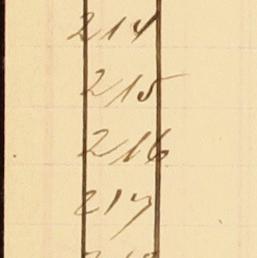 214
215
216
217